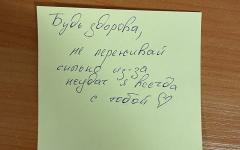 Будь здорова,
не переживай
сильно из-за
неудач я всегда
с тобой ♡